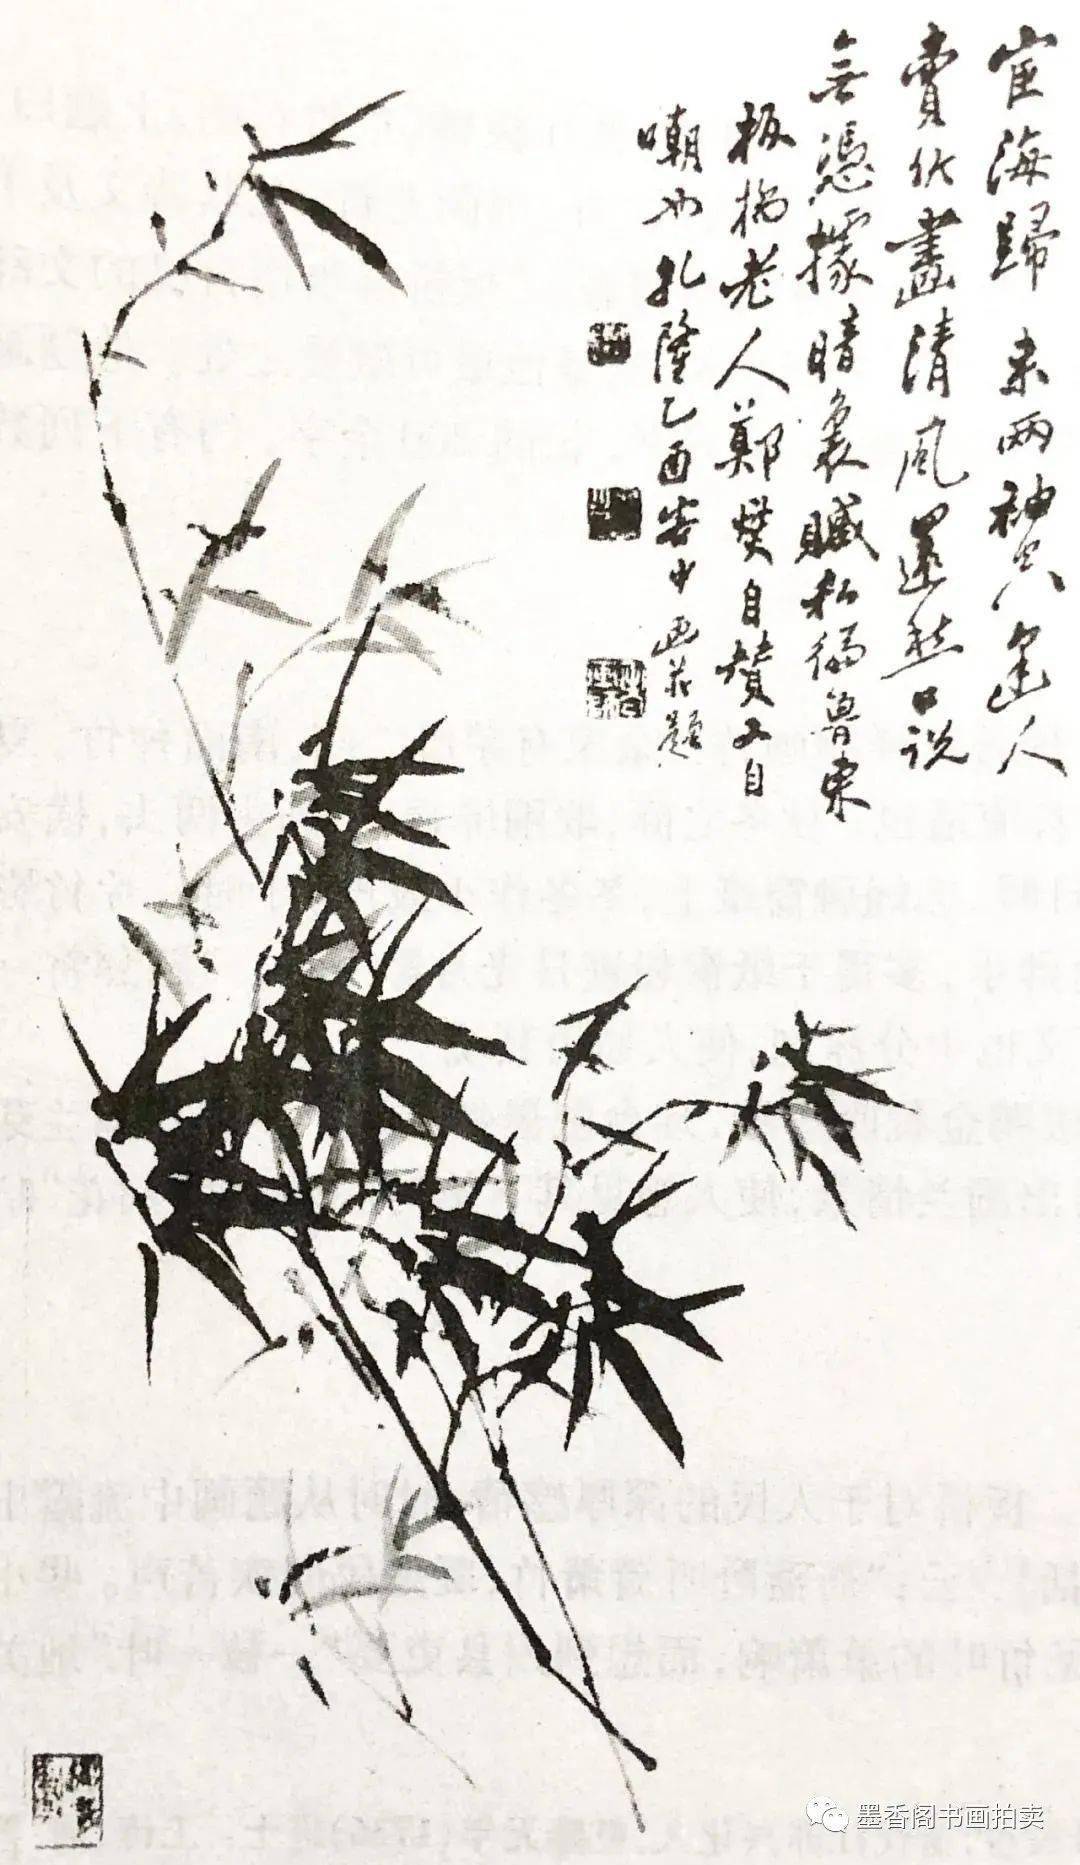 宦海歸來兩袖空逢人
賣竹畫清風還愁口說
無憑據暗裏贓私徧魯東
板橋老人鄭燮自贊又自
嘲也乾隆乙酉客中畫並題
墨香阁书画拍卖